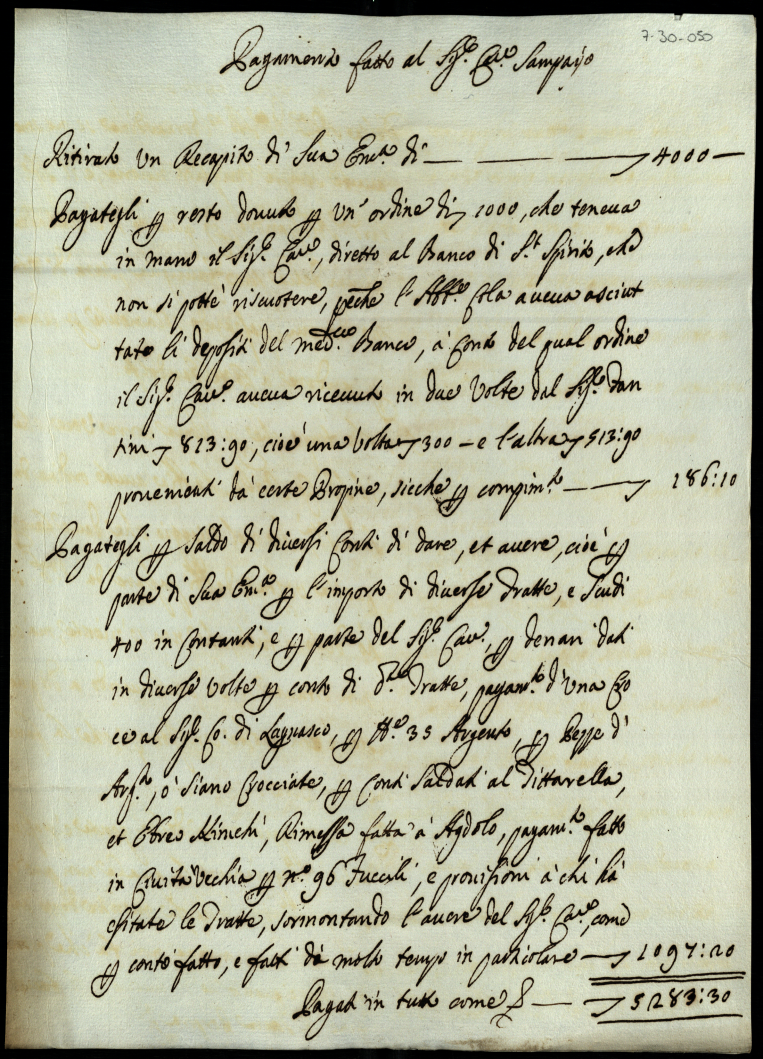 7-30-050
Pagamento fatto al Sig.r Cav.re Sampajo
Ritirato un Recapito di Sua Em.za di — — — 4000 —
Pagategli p resto dovuto p un' ordine di 1000, che teneva
in mano il Sig.r Cav.re, diretto al Banco di S.to Spirito, che
non si potté riscuotere, perche l'Abb.e aveva asciut
tato li depositi del med.mo Banco, à conto del qual ordine
il Sig.r Cav.re aveva ricevuto in due volte dal Sig.r Dan
tini 813:90, cioé una volta 300 — e l'altra 513:90
provenienti dà certe Propine, sicche p compim.to — 186:10
Pagategli p saldo di diversi Conti di dare, et avere, cioé p
parte di Sua Em.za p l'importo di diverse Tratte, e Scudi
400 in Contanti, e p parte del Sig.r Cav.re, p denari dati
in diverse volte p conto di d.e Tratte, pagam.to d'una Cro
ce al Sig.r Co. di Lagnasco, p 35 Argento, p Pezze d'
Arg.to, ò siano Crocciate, p Conti saldati al Tittarella,
et Ebreo Minichi, Rimessa fatta à Agdolo, pagam.to fatto
in Civita Vecchia p n.o 96 Fucili, e provisioni à chi hà
esitate le Tratte, sormontando l'avere del Sig.r Cav.re, come
p conto fatto, e fatti dà molto tempo in particolare — 1097:20
Pagati in tutto come S — 5283:30